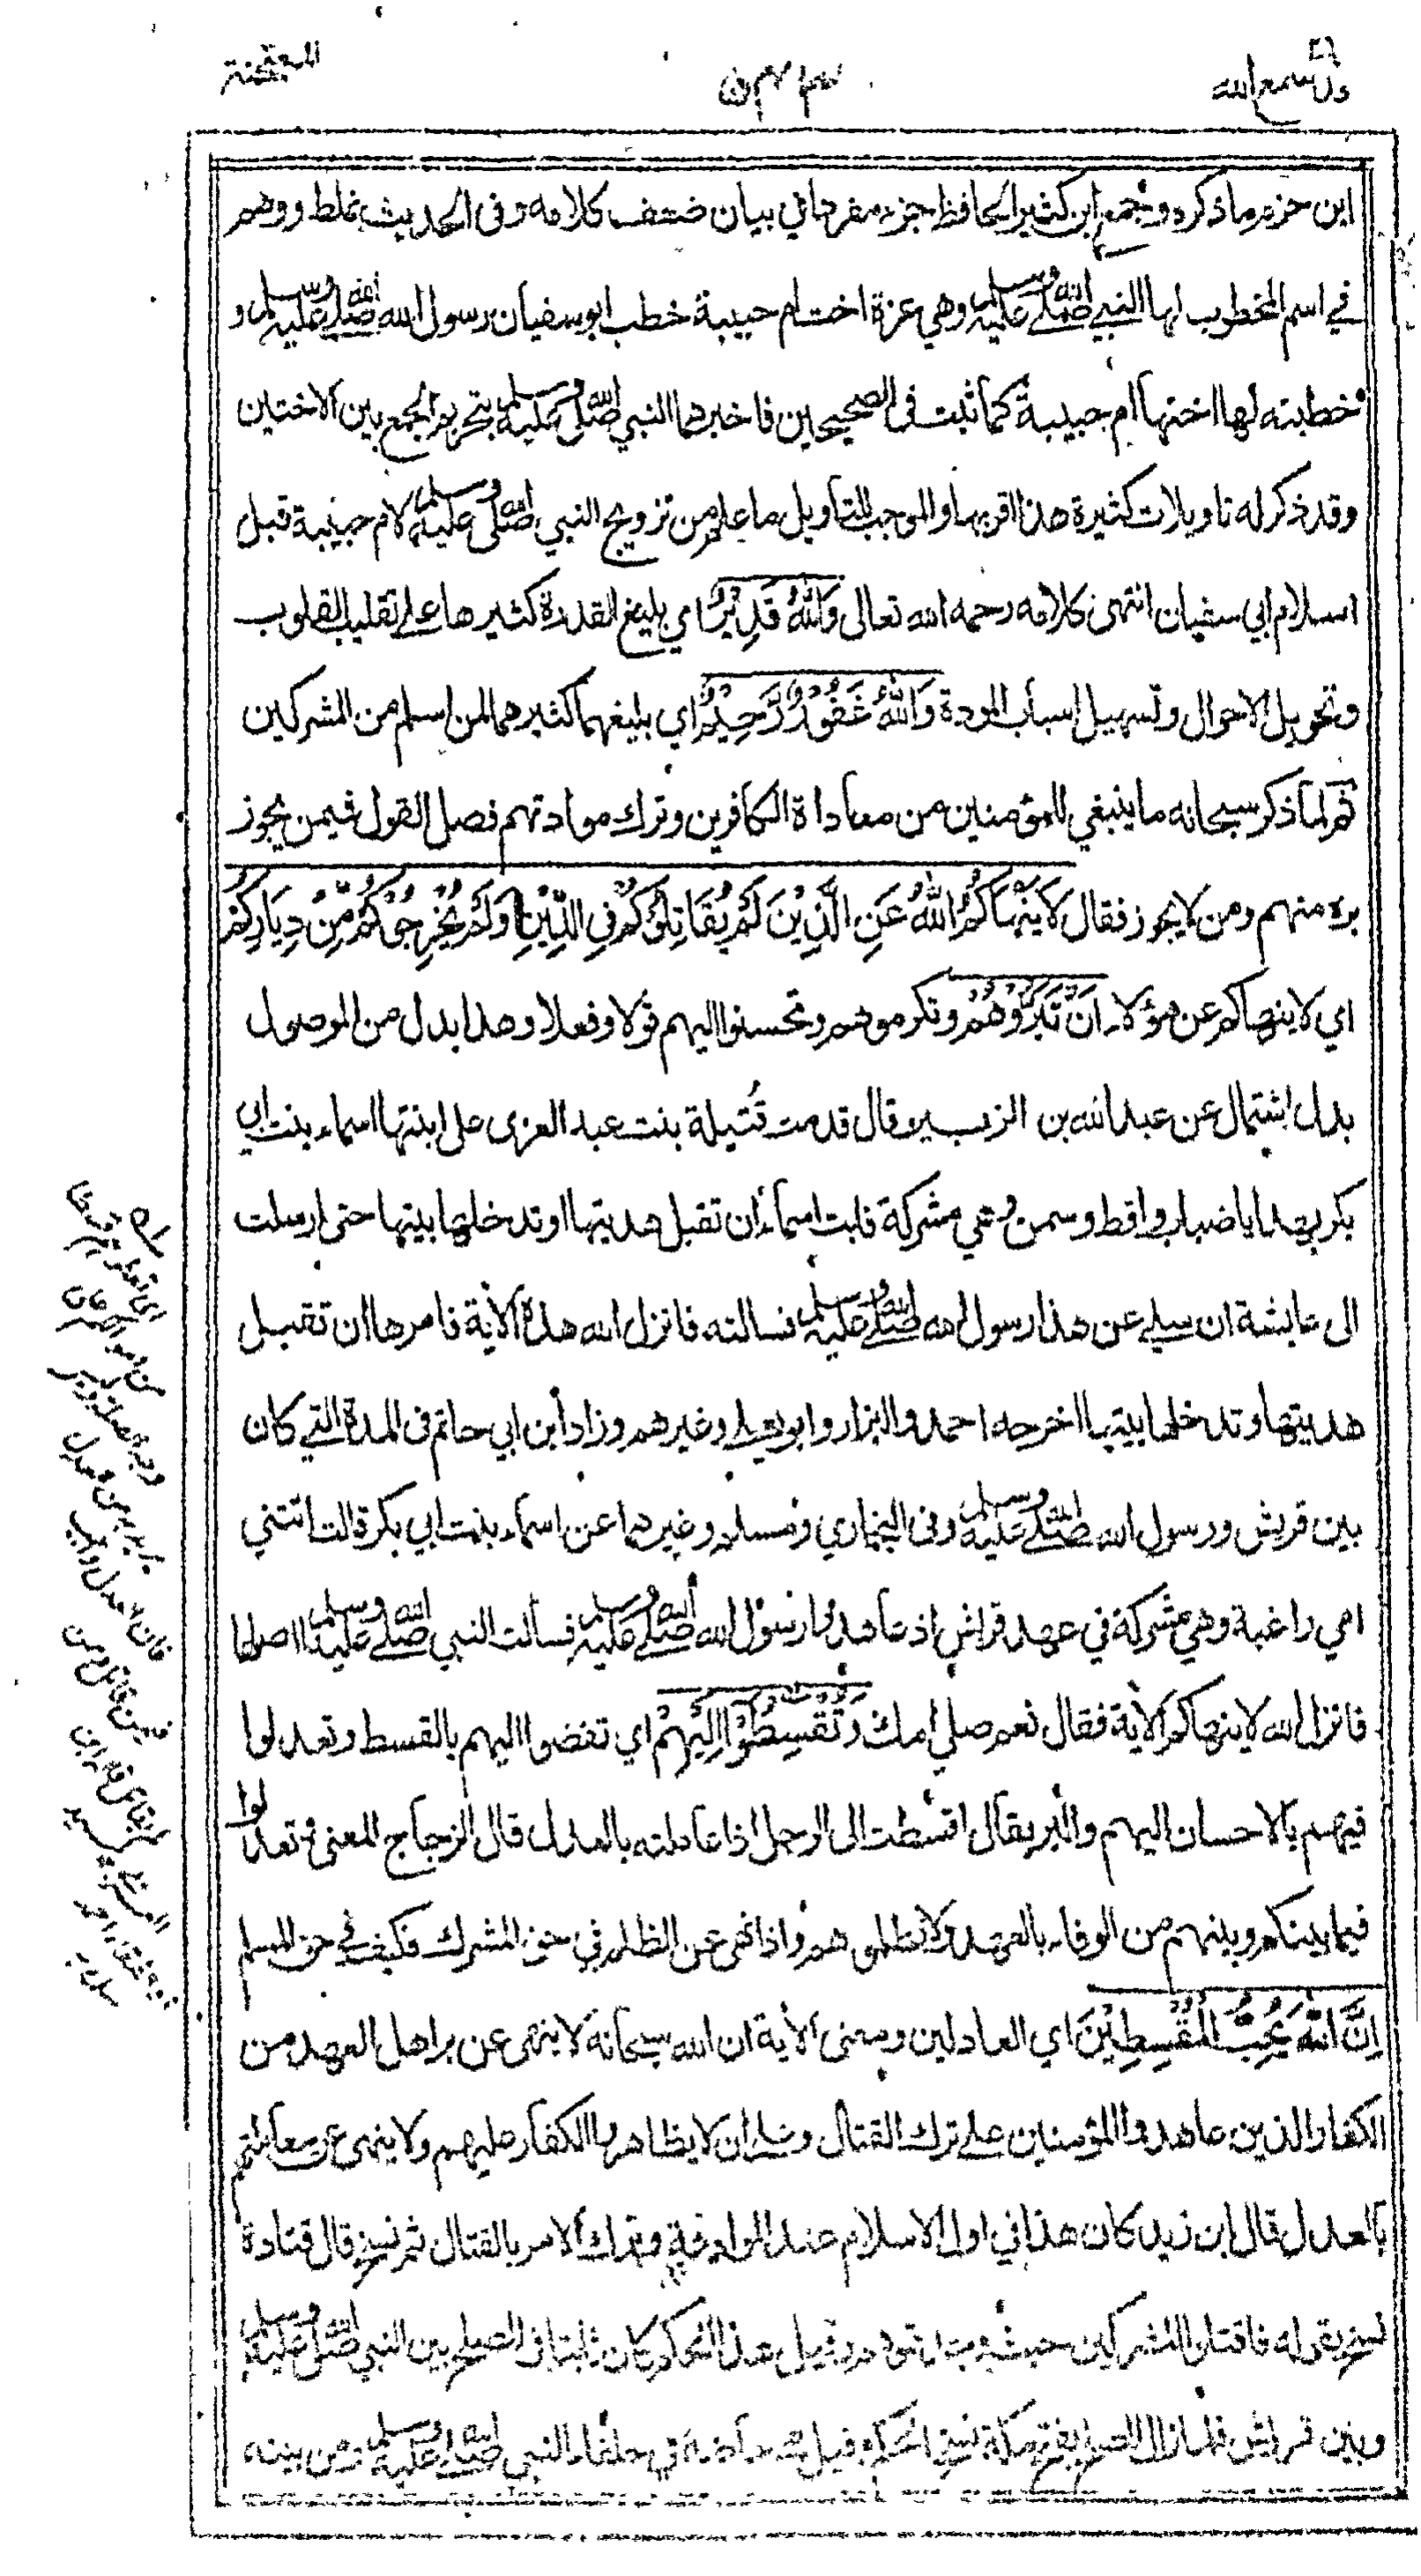 قد سمع الله
الممتحنة
ابن حزم ما ذكره وجمع ابن كثير الحافظ جزء مفردا في بيان ضعف كلامه وفى الحديث غلط ووهم
في اسم المخطوب لها النبي صلى الله عليه وسلم وهي عزة اخت ام حبيبة خطب ابو سفيان رسول الله صلى الله عليه وسلم و
خطبته لها اختها ام حبيبة كما ثبت فى الصحيحين فاخبرهما النبي صلى الله عليه وسلم بتحريم الجمع بين الاختين
وقد ذكر له تاويلات كثيرة هذا اقربها والموجب للتاويل ما علم من تزويج النبي صلى الله عليه وسلم لام حبيبة قبل
اسلام ابي سفيان انتهى كلامه رحمه الله تعالى وَاللهُ قَدِيْرٌ اي بليغ القدرة كثيرها على تقليب القلوب
وتحويل الاحوال وتسهيل اسباب المودة وَاللهُ غَفُوْرٌ رَّحِيْمٌ اي بليغهما كثيرهما لمن اسلم من المشركين
ثم لما ذكر سبحانه ما ينبغي للمؤمنين من معاداة الكافرين وترك موادتهم فصل القول فيمن يجوز
بره منهم ومن لا يجوز فقال لَا يَنْهَاكُمُ اللهُ عَنِ الَّذِيْنَ لَمْ يُقَاتِلُوْكُمْ فِي الدِّيْنِ وَلَمْ يُخْرِجُوْكُمْ مِّنْ دِيَارِكُمْ
اي لا ينهاكم عن هؤلاء اَنْ تَبَرُّوْهُمْ وتكرموهم وتحسنوا اليهم قولا وفعلا وهذا بدل من الموصول
بدل اشتمال عن عبد الله بن الزبير قال قدمت قُتيلة بنت عبد العزى على ابنتها اسماء بنت ابي
بكر بهدايا ضباب واقط وسمن وهي مشركة فابت اسماء ان تقبل هديتها او تدخلها بيتها حتى ارسلت
الى عايشة ان سلي عن هذا رسول الله صلى الله عليه وسلم فسالته فانزل الله هذه الآية فامرها ان تقبل
هديتها وتدخلها بيتها اخرجه احمد والبزار وابو يعلى وغيرهم وزاد ابن ابي حاتم فى المدة التي كان
بين قريش ورسول الله صلى الله عليه وسلم وفى البخاري ومسلم وغيرهما عن اسماء بنت ابي بكر قالت اتتني
امي راغبة وهي مشركة في عهد قريش اذ عاهدوا رسول الله صلى الله عليه وسلم فسألت النبي صلى الله عليه وسلم ااصلها
فانزل الله لا ينهاكم الاية فقال نعم صلي امك وَتُقْسِطُوْا اِلَيْهِمْ اي تفضوا اليهم بالقسط وتعدلوا
فيهم بالاحسان اليهم والبر يقال اقسطت الى الرجل اذا عاملته بالعدل قال الزجاج المعنى وتعدلوا
فيما بينكم وبينهم من الوفاء بالعهد ولا تظلموهم واذا نهى عن الظلم في حق المشرك فكيف في حق المسلم
اِنَّ اللهَ يُحِبُّ الْمُقْسِطِيْنَ اي العادلين ومعنى الآية ان الله سبحانه لا ينهى عن بر اهل العهد من
الكفار الذين عاهدوا المؤمنين على ترك القتال وعلى ان لا يظاهروا الكفار عليهم ولا ينهى عن معاملتهم
بالعدل قال ابن زيد كان هذا في اول الاسلام عند الموادعة وترك الامر بالقتال ثم نسخ قال قتادة
نسخ بقوله فاقتلوا المشركين حيث وجدتموهم وقيل هذا الحكم كان ثابتا فى الصلح بين النبي صلى الله عليه وسلم
وبين قريش فلما زال الصلح بفتح مكة نسخ الحكم وقيل هي خاصة في حلفاء النبي صلى الله عليه وسلم ومن بينه